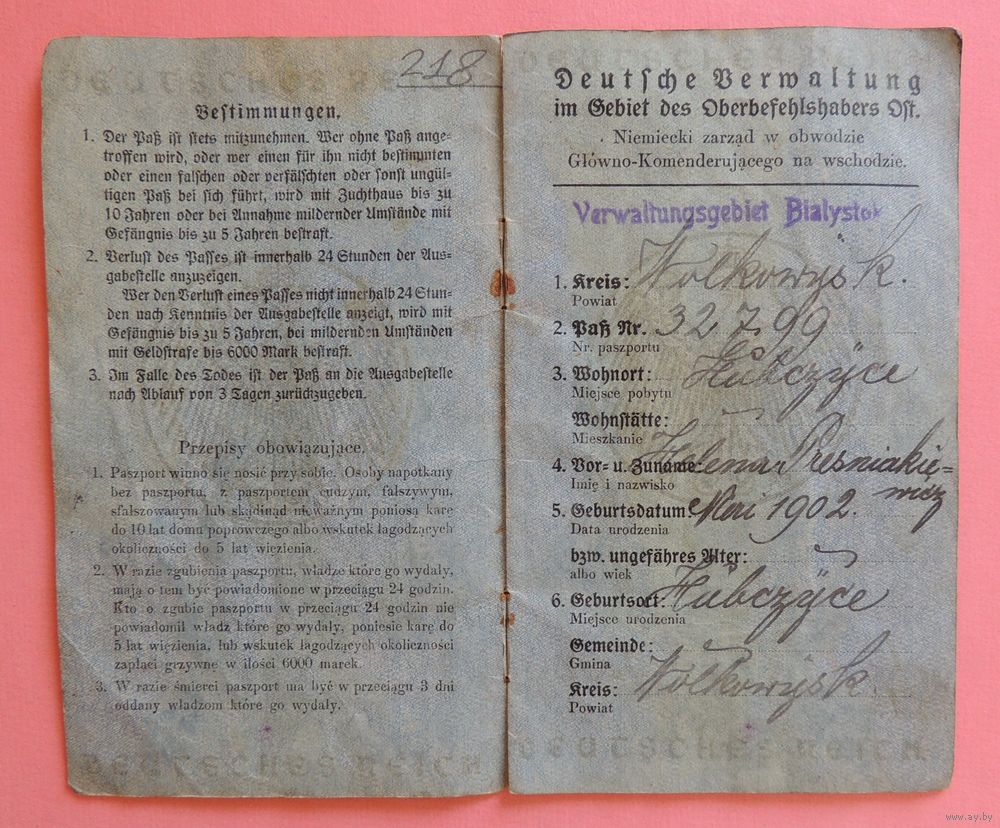 218
Bestimmungen.
1. Der Paß ist stets mitzunehmen. Wer ohne Paß ange-
troffen wird, oder wer einen für ihn nicht bestimmten
oder einen falschen oder verfälschten oder sonst ungül-
tigen Paß bei sich führt, wird mit Zuchthaus bis zu
10 Jahren oder bei Annahme mildernder Umstände mit
Gefängnis bis zu 5 Jahren bestraft.
2. Verlust des Passes ist innerhalb 24 Stunden der Aus-
gabestelle anzuzeigen.
Wer den Verlust eines Passes nicht innerhalb 24 Stun-
den nach Kenntnis der Ausgabestelle anzeigt, wird mit
Gefängnis bis zu 5 Jahren, bei mildernden Umständen
mit Geldstrafe bis 6000 Mark bestraft.
3. Im Falle des Todes ist der Paß an die Ausgabestelle
nach Ablauf von 3 Tagen zurückzugeben.
Przepisy obowiązujące.
1. Paszport winno się nosić przy sobie. Osoby napotkany
bez paszportu, z paszportem cudzym, fałszywym,
sfałszowanym lub skądinąd nieważnym poniosą karę
do 10 lat domu poprawczego albo wskutek łagodzących
okoliczności do 5 lat więzienia.
2. W razie zgubienia paszportu, władze które go wydały,
mają o tem być powiadomione w przeciągu 24 godzin.
Kto o zgubie paszportu w przeciągu 24 godzin nie
powiadomił władz które go wydały, poniesie karę do
5 lat więzienia, lub wskutek łagodzących okoliczności
zapłaci grzywne w ilości 6000 marek.
3. W razie śmierci paszport ma być w przeciągu 3 dni
oddany władzom które go wydały.
DEUTSCHES REICH
Deutsche Verwaltung
im Gebiet des Oberbefehlshabers Ost.
Niemiecki zarząd w obwodzie
Główno-Komenderującego na wschodzie.
Verwaltungsgebiet Bialystok
1. Kreis: Wolkowysk.
Powiat
2. Paß Nr. 32799
Nr. paszportu
3. Wohnort: Hubczyce
Miejsce pobytu
Wohnstätte:
Mieszkanie
4. Vor- u. Zuname: Helena Presniakie=
Imię i nazwisko wicz
5. Geburtsdatum 1902.
Data urodzenia
bzw. ungefähres Alter:
albo wiek
6. Geburtsort: Hubczyce
Miejsce urodzenia
Gemeinde:
Gmina
Kreis: Wolkowysk
Powiat
DEUTSCHES REICH
www.ay.by